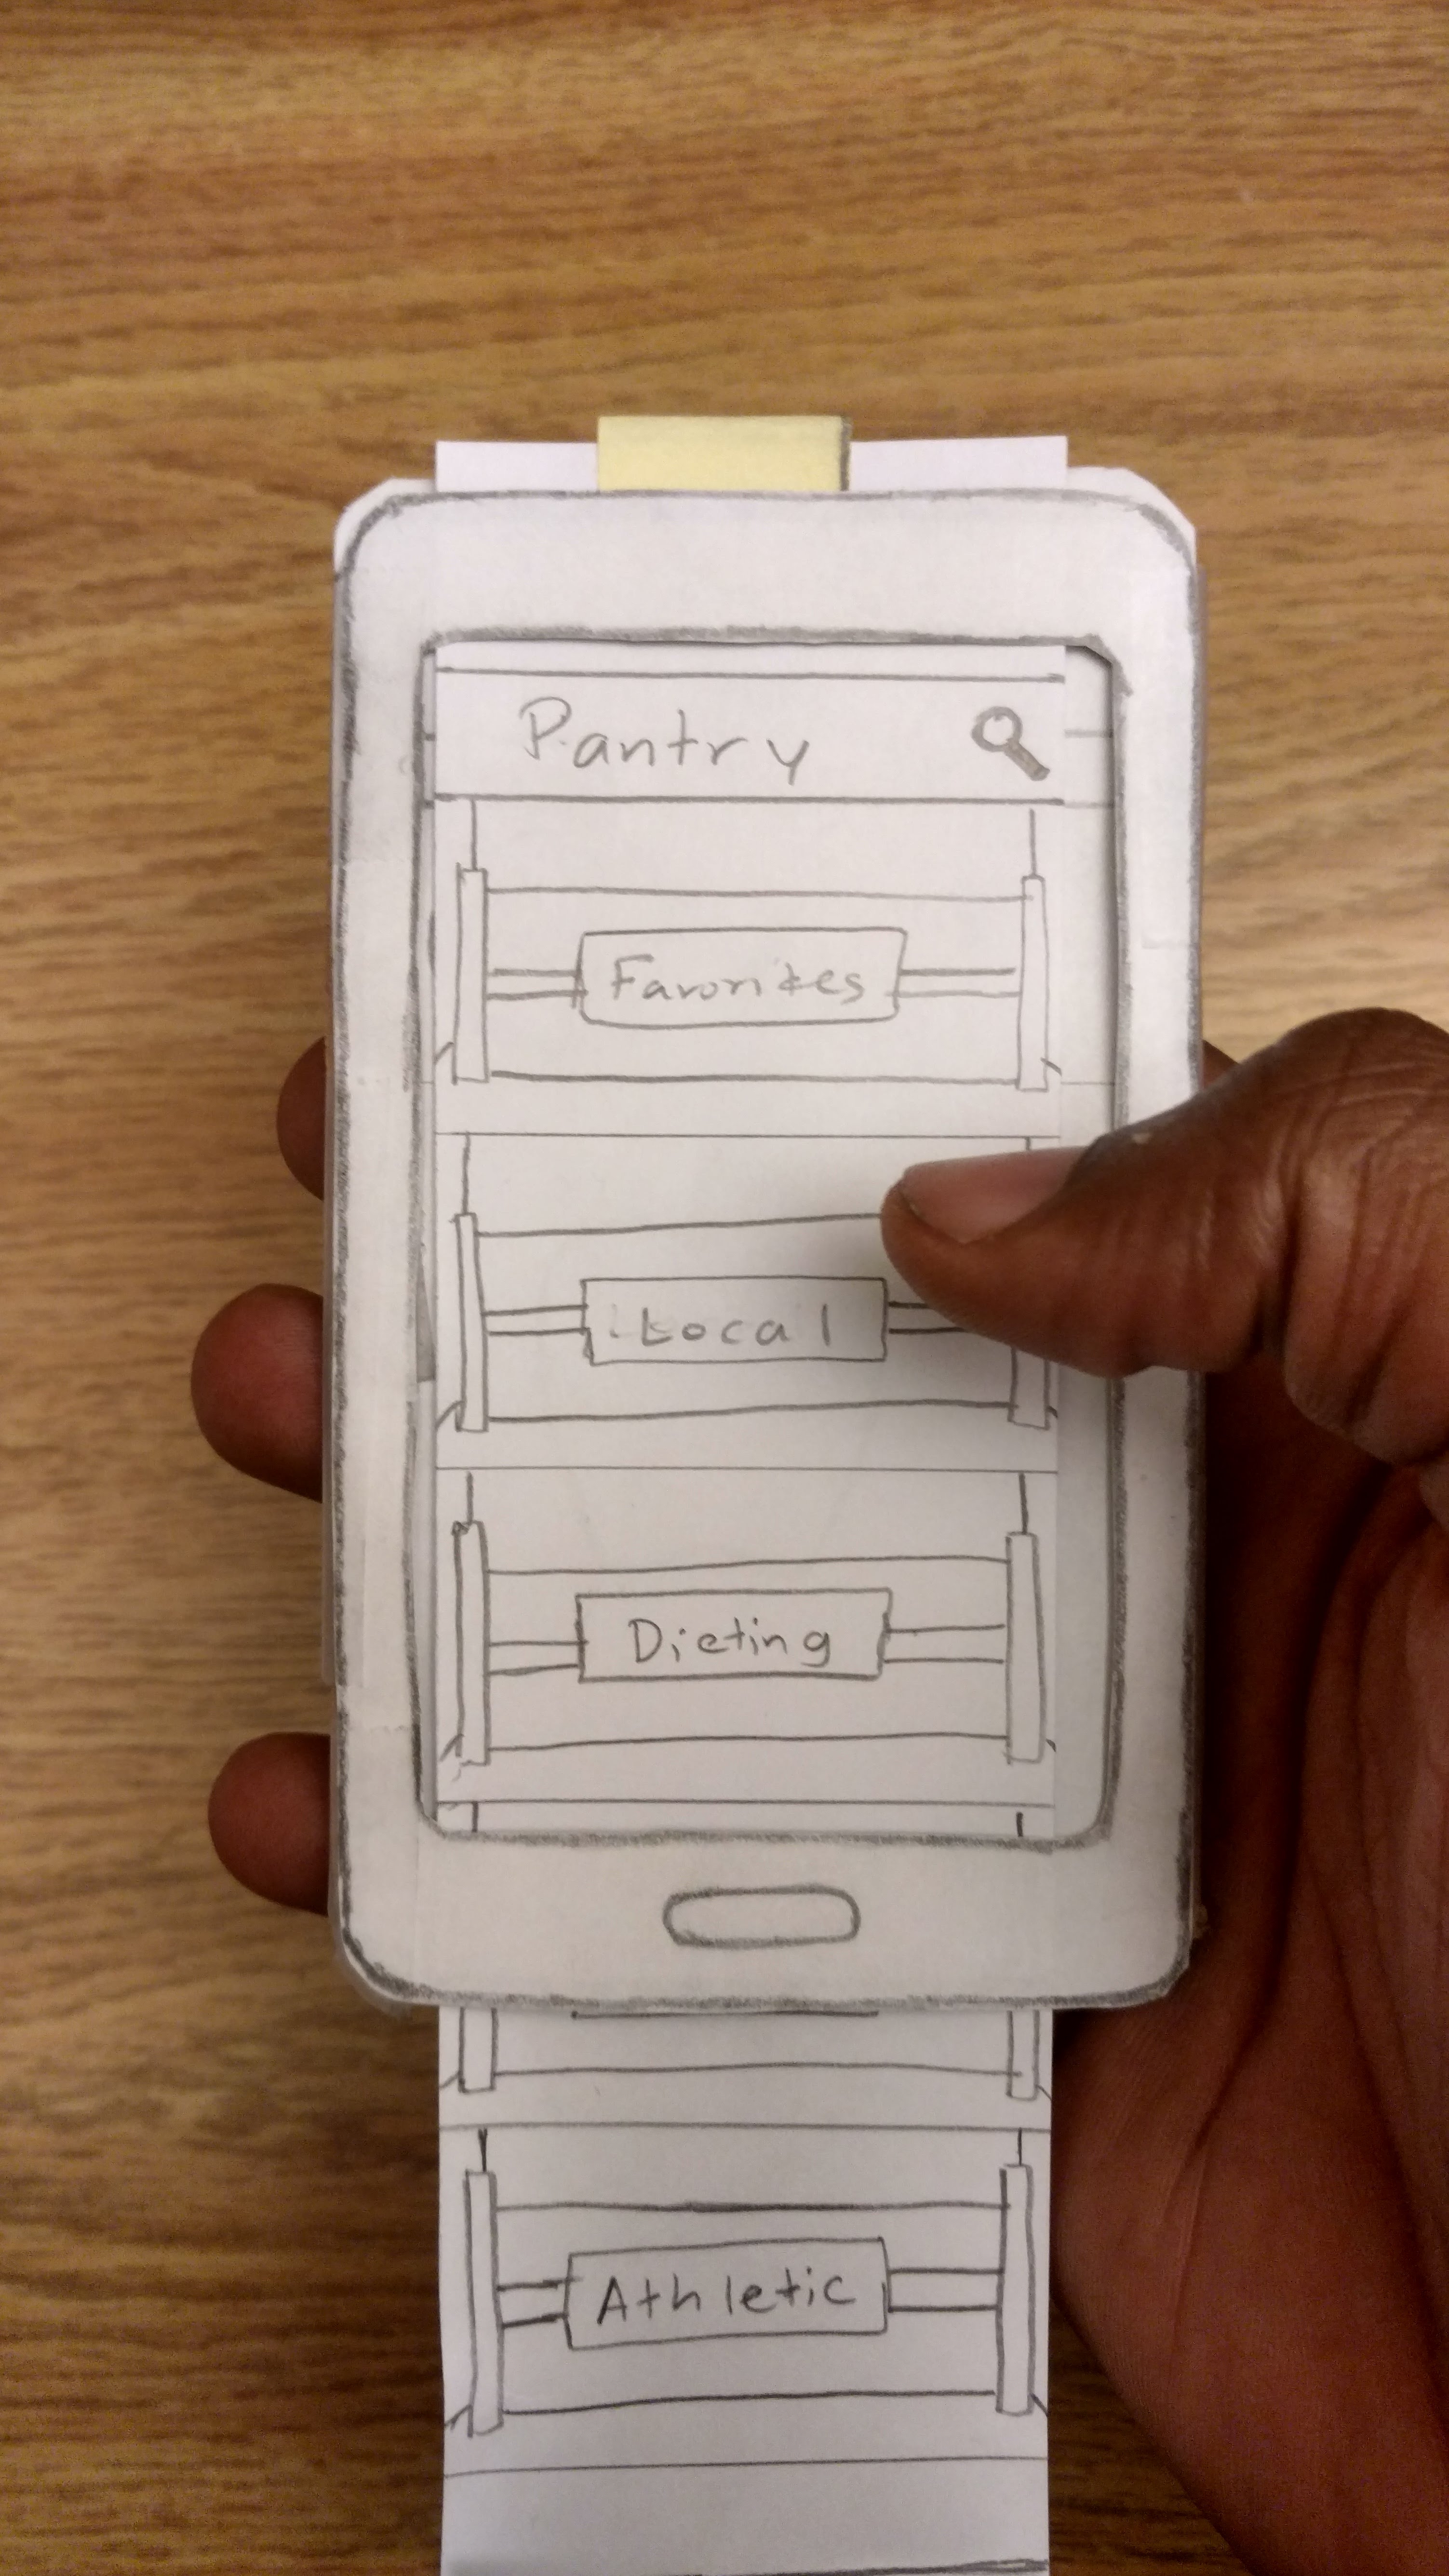 Pantry
Favorites
Local
Dieting
Athletic